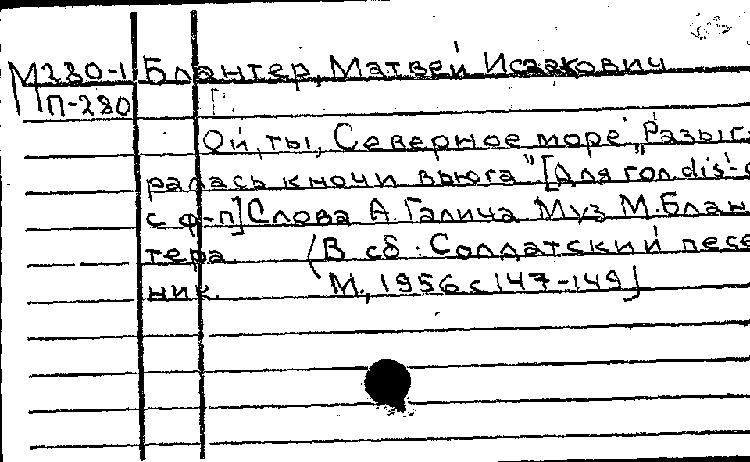 М280-1 Блантер, Матвей Исаакович
П-280
Ой, ты, Северное море „Разыг-
ралась к ночи вьюга" [Для гол. dis¹-
с ф-п] Слова А. Галича Муз М. Блан
тера (В сб. Солдатский песе
ник. М., 1956 с 147-149]